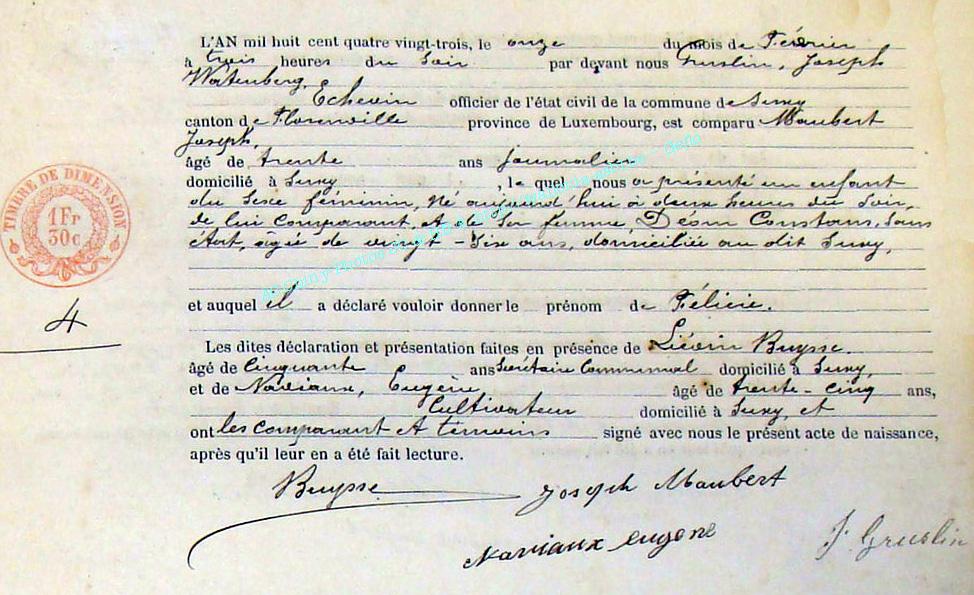 L'AN mil huit cent quatre vingt-trois, le onze du mois de Février
à trois heures du soir par devant nous Gruslin, Joseph
Watenberg,
Echevin officier de l'état civil de la commune de Suxy
canton de Florenville province de Luxembourg, est comparu Maubert
Joseph,
âgé de trente ans journalier
domicilié à Suxy, le quel nous a présenté un enfant
du sexe féminin, né aujourd'hui à deux heures du soir,
de lui comparant, et de sa femme Désom Constans, sans
état, âgée de vingt-six ans, domiciliée au dit Suxy,
et auquel il a déclaré vouloir donner le prénom de Félicie.
Les dites déclaration et présentation faites en présence de Liévin Buysse.
âgé de cinquante ans Secrétaire Communal domicilié à Suxy,
et de Naviaux, Eugène, âgé de trente-cinq ans,
Cultivateur domicilié à Suxy, et
ont les comparant et témoins signé avec nous le présent acte de naissance,
après qu'il leur en a été fait lecture.
TIMBRE DE DIMENSION
1Fr
30c
4
Buysse Joseph Maubert
Naviaux eugene J. Gruslin